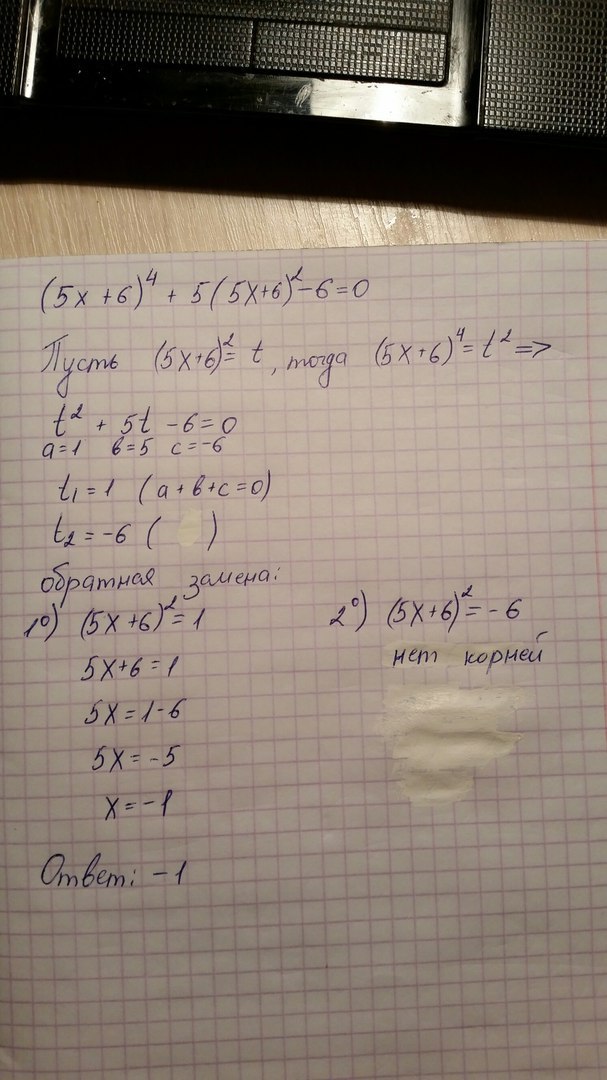 (5x+6)⁴ + 5(5x+6)² - 6 = 0
Пусть (5x+6)² = t, тогда (5x+6)⁴ = t² =>
t² + 5t - 6 = 0
a=1 в=5 c=-6
t₁ = 1 (a+в+c=0)
t₂ = -6 ( )
обратная замена:
1⁰) (5x+6)² = 1
5x+6 = 1
5x = 1-6
5x = -5
x = -1
2⁰) (5x+6)² = -6
нет корней
Ответ: -1